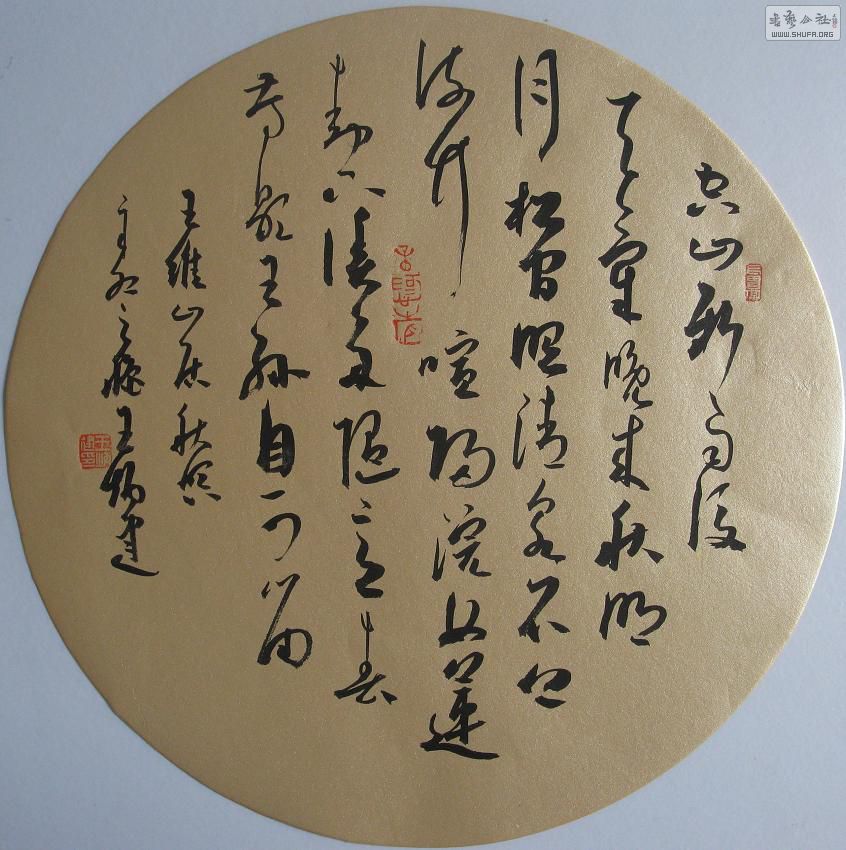 空山新雨後
天氣晚來秋明
月松間照清泉石上
流竹喧歸浣女蓮
動下漁舟隨意春
芳歇王孫自可留
王維山居秋暝
王建
WWW.SHUFA.ORG